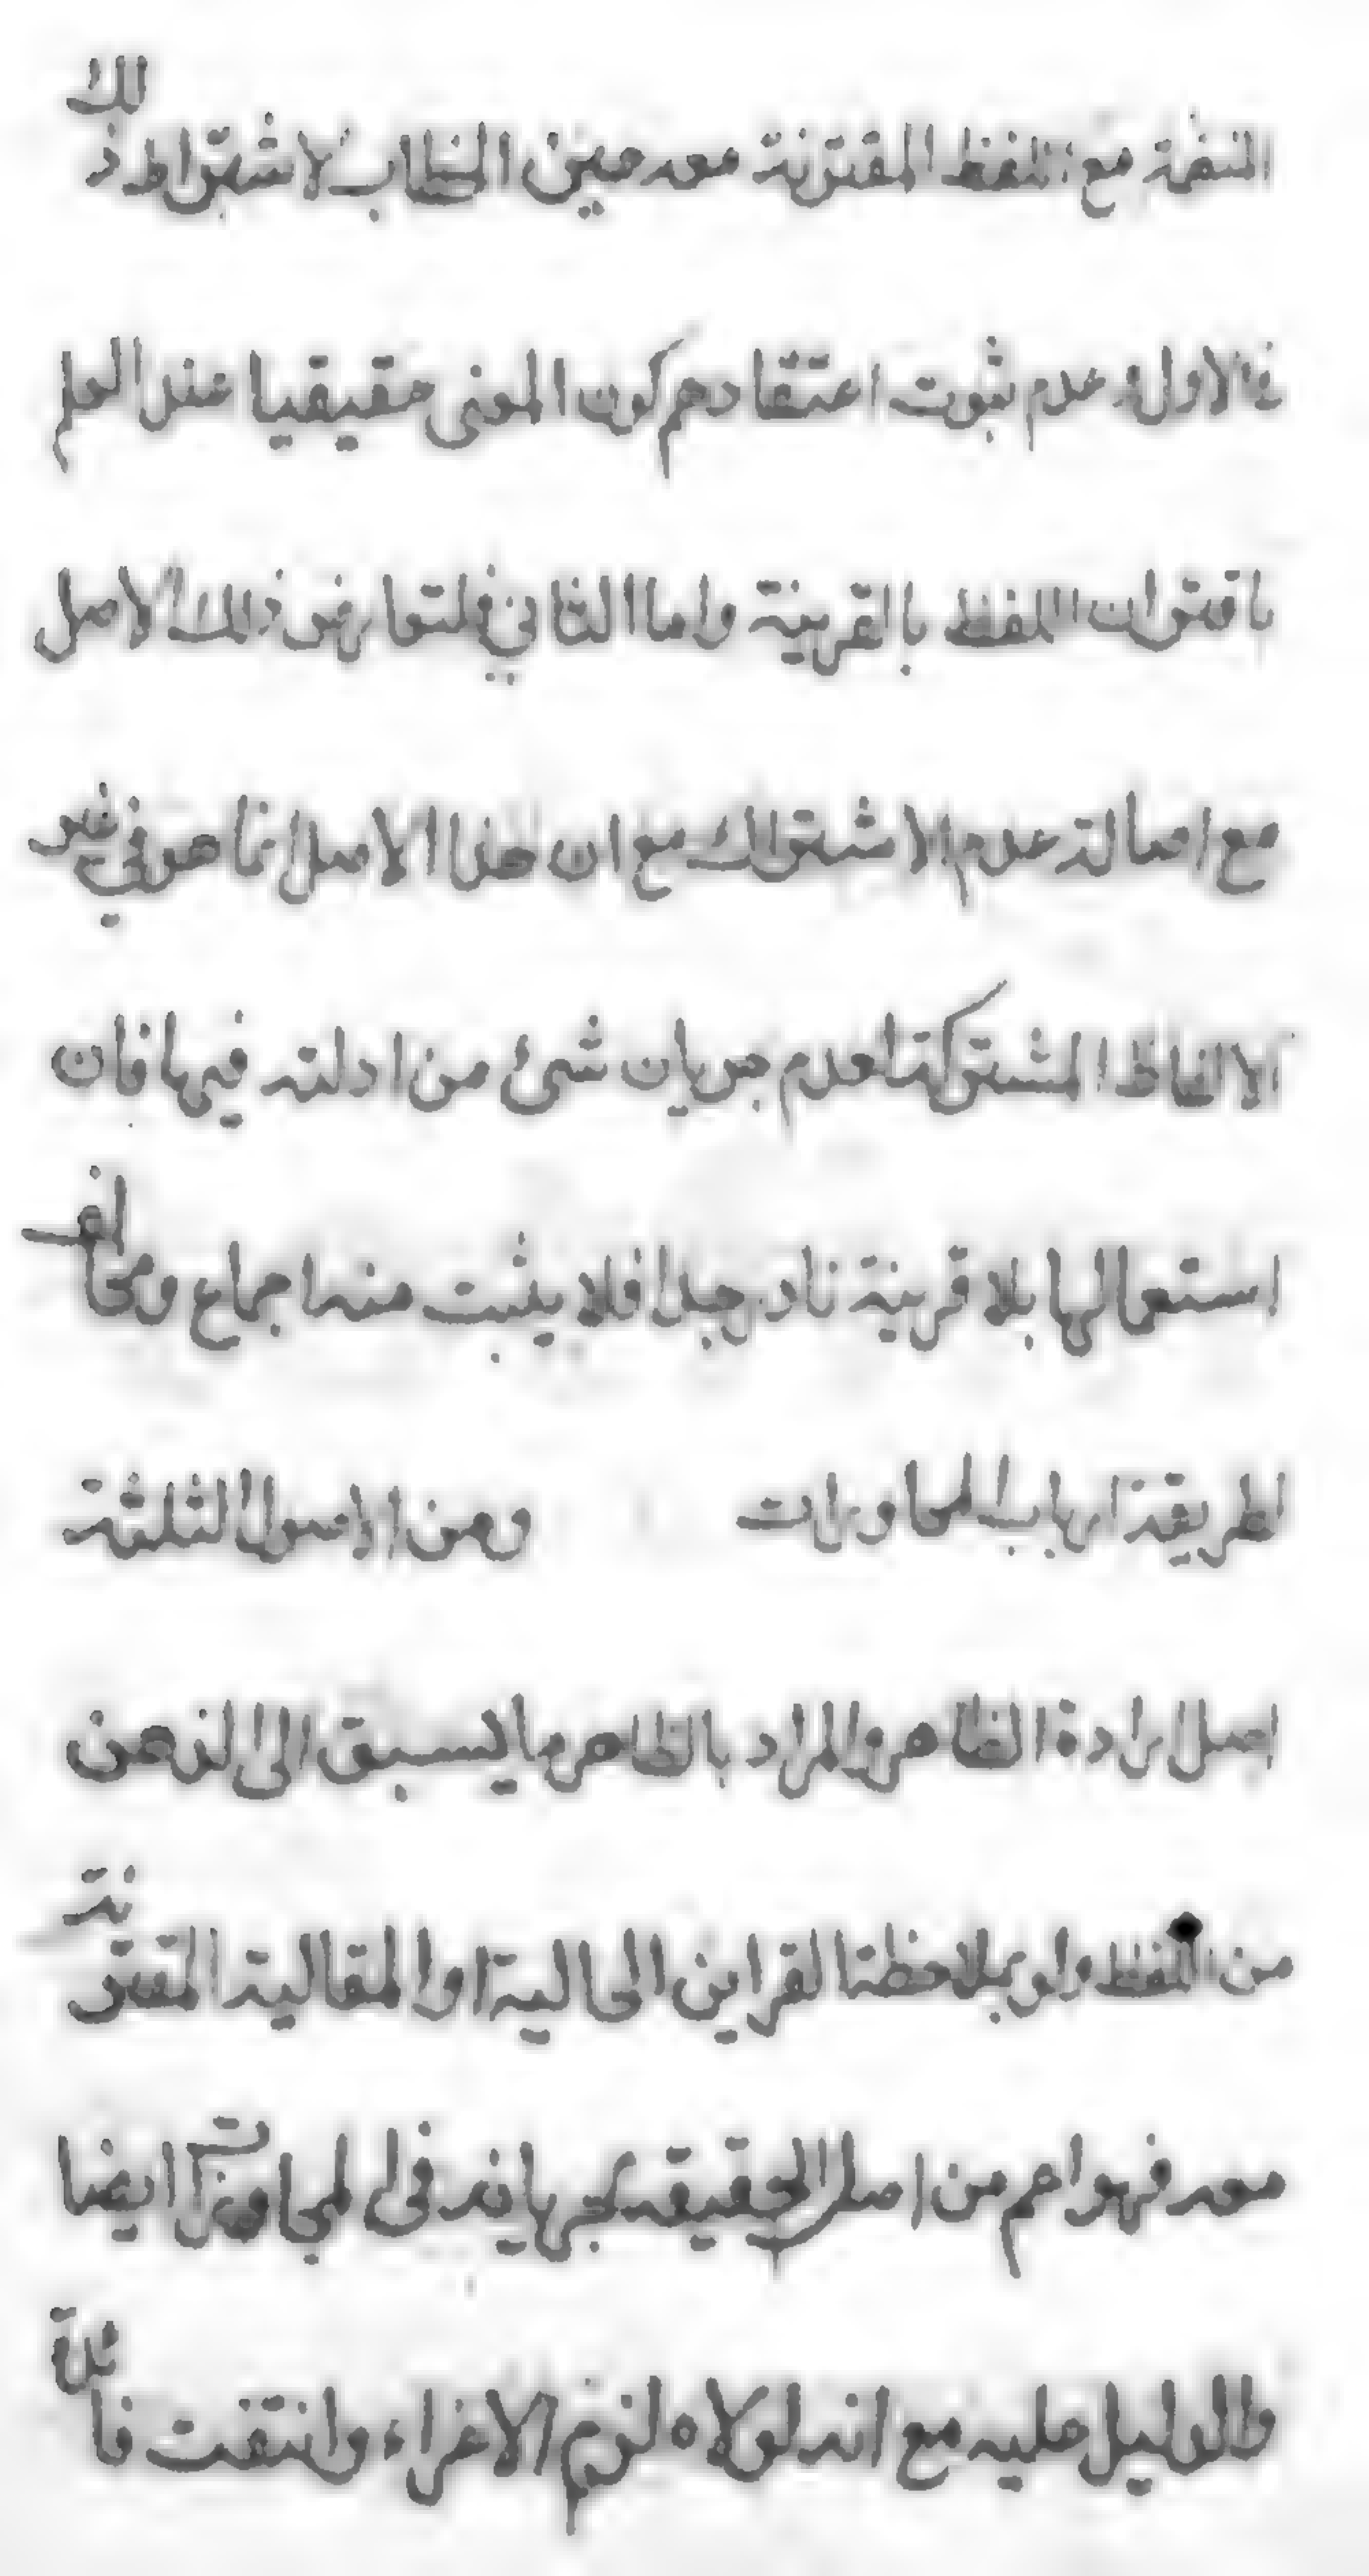 المنفية مع اللفظ المقترنة معه حين الخطاب لاشتراط ذلك
في الاول و عدم ثبوت اعتقادهم كون المعنى حقيقيا عند العلم
باقتران اللفظ بالقرينة واما الثاني فلتعارض ذلك الاصل
مع اصالة عدم الاشتراك مع ان هذا الاصل انما هو في غير
الالفاظ المشتركة لعدم جريان شئ من ادلته فيها فان
استعمالها بلا قرينة نادر جدا فلا يثبت منه اجماع ومخالف
لطريقة ارباب المحاورات ومن الاصول الثلثة
اصل ارادة الظاهر والمراد بالظاهر ما يسبق الى الذهن
من اللفظ ولو بملاحظة القراين الحالية او المقالية المقترنة
معه فهو اعم من اصل الحقيقه لجريانه في المجاز ايضا
والدليل عليه مع انه لولاه لزم الاغراء وانتفت فائدة